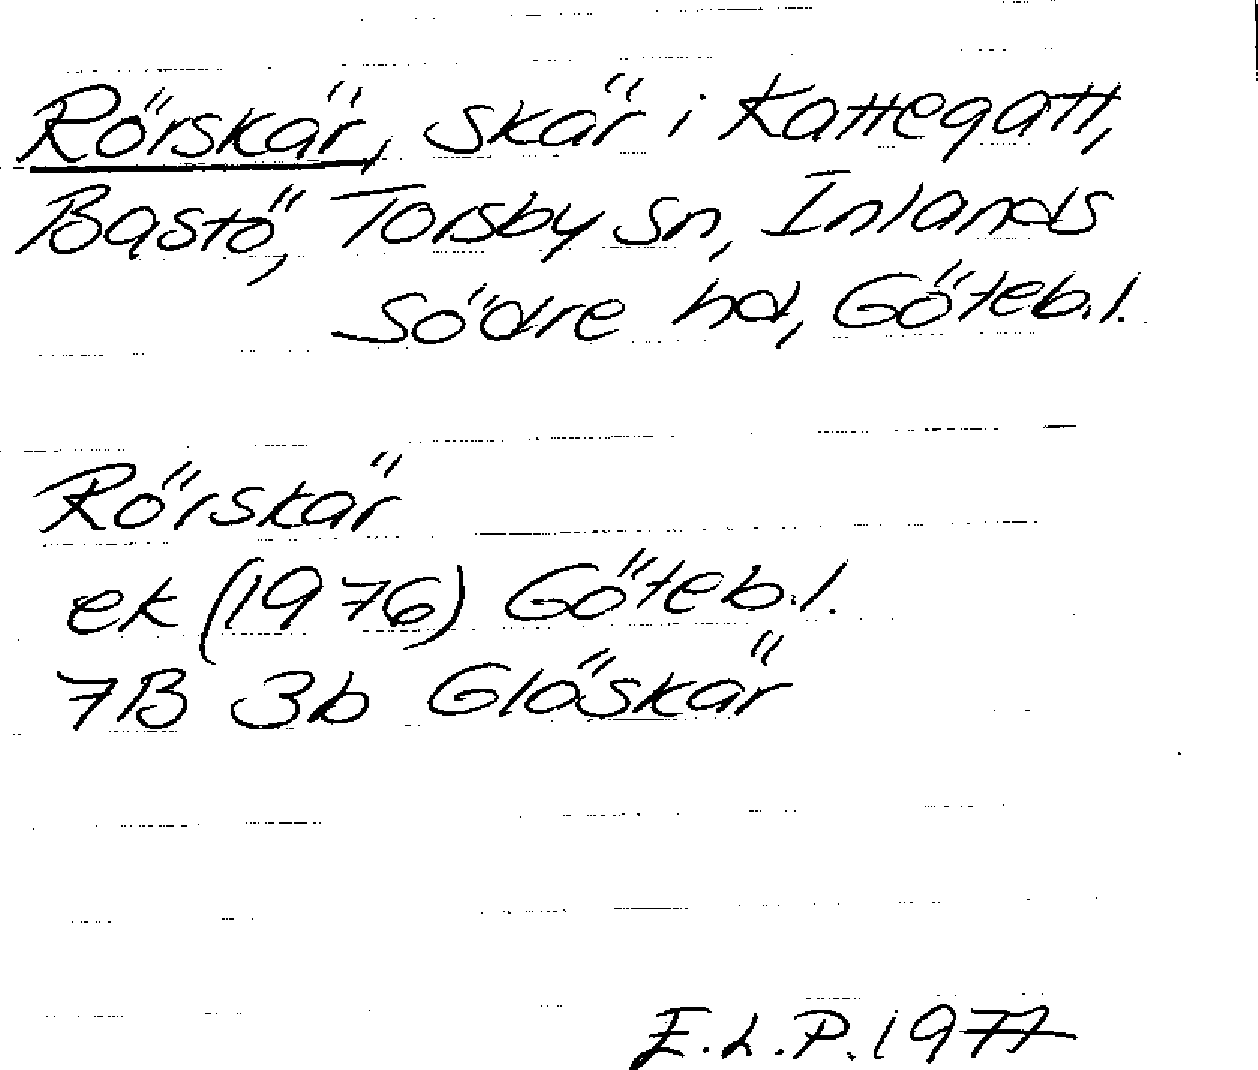 Rörskär, skär i Kattegatt,
Bastö, Torsby sn, Inlands
Södre hd, Göteb.l.
Rörskär
ek (1976) Göteb.l.
7B 3b Glöskär
E.L.P. 1977